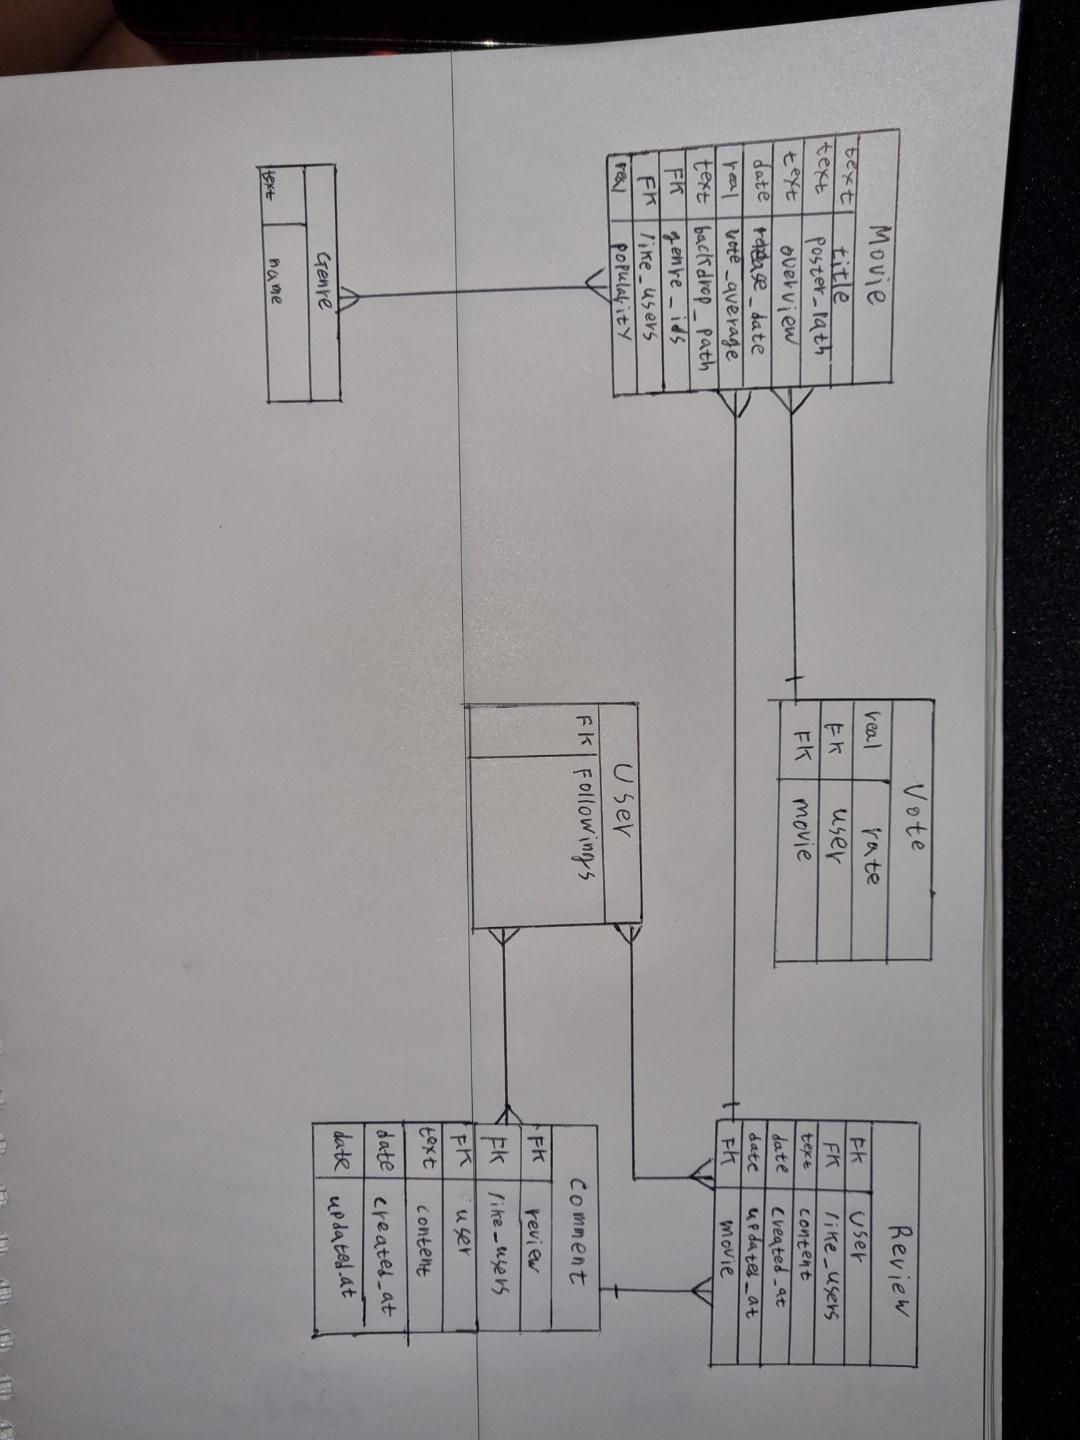 Movie
text title
text poster_path
text overview
date release_date
real vote_average
text backdrop_path
FK genre_ids
FK like_users
real popularity
Vote
real rate
FK user
FK movie
Review
FK user
FK like_users
text content
date created_at
date updated_at
FK movie
User
FK Followings
comment
FK review
FK like_users
FK user
text content
date created_at
date updated_at
Genre
text name